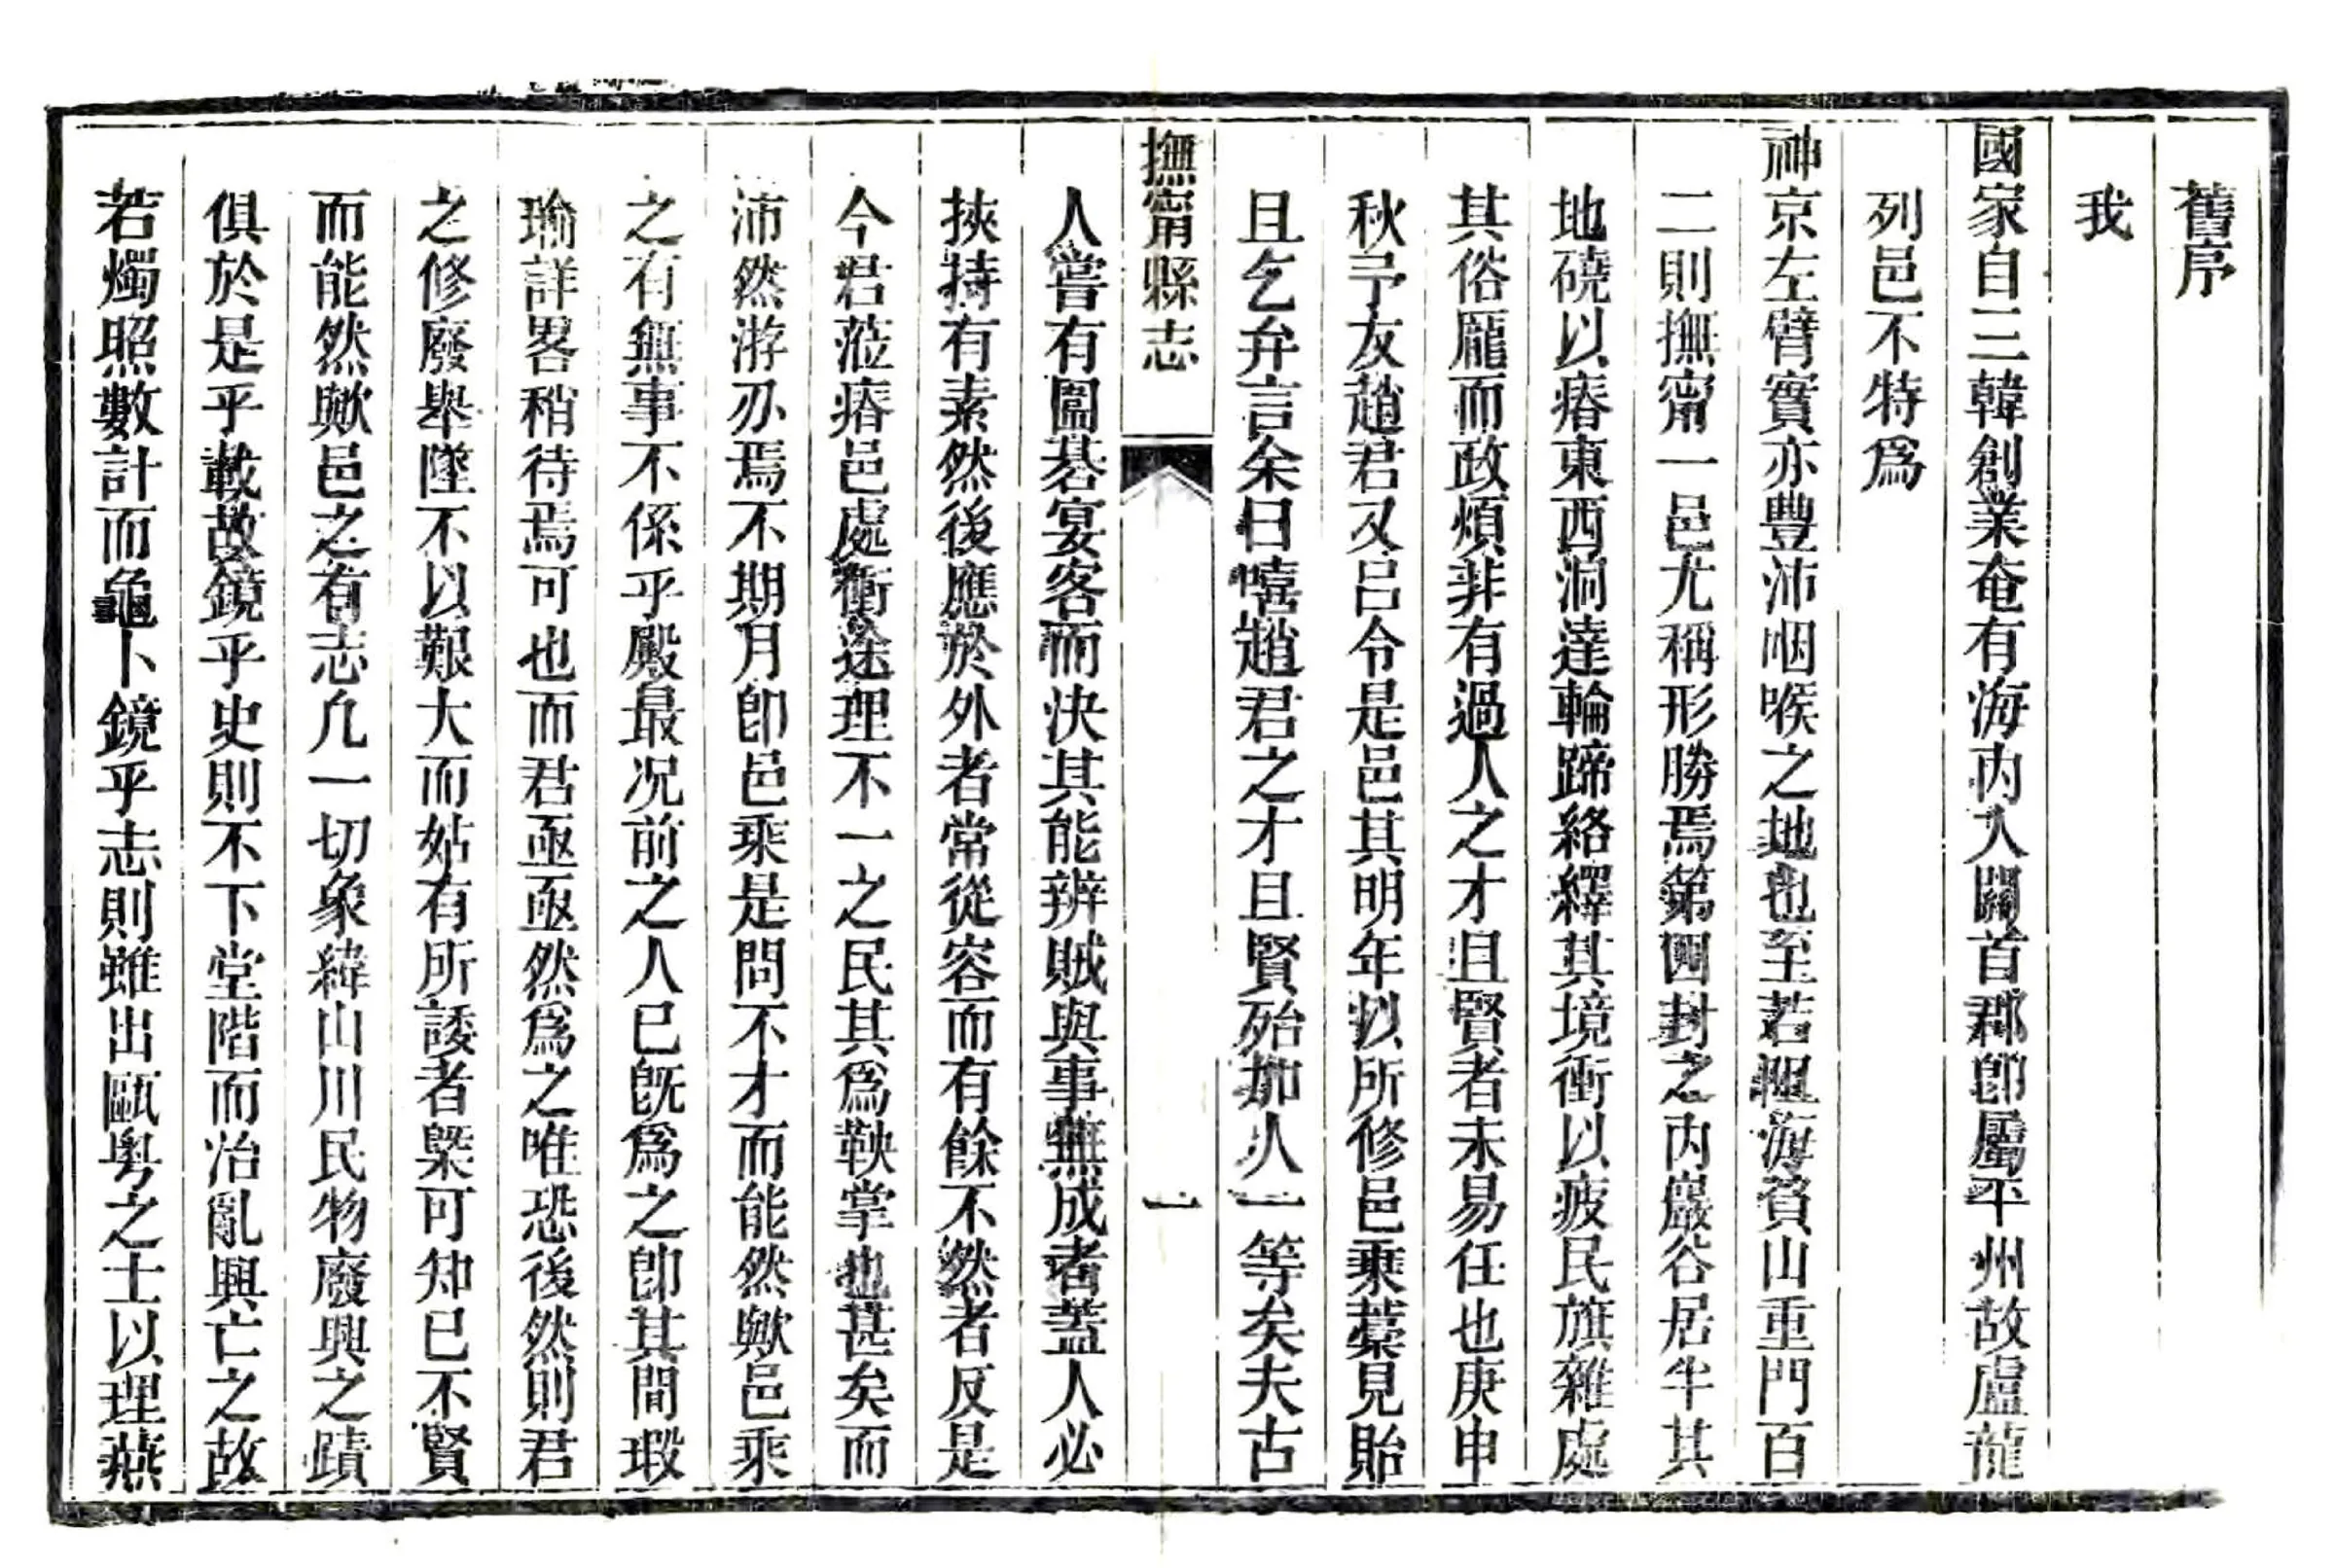 舊序
我
國家自三韓創業奄有海內入關首郡卽屬平州故盧龍
列邑不特爲
神京左臂實亦豐沛咽喉之地也至若襟海負山重門百
二則撫甯一邑尤稱形勝焉第四封之內巖谷居半其
地磽以瘠東西洞達輪蹄絡繹其境衝以疲民旗雜處
其俗厖而政煩非有過人之才且賢者未易任也庚申
秋予友趙君又呂令是邑其明年以所修邑乘藁見貽
且乞弁言余曰嘻趙君之才且賢殆加人一等矣夫古
撫甯縣志
一
人嘗有圍碁宴客而決其能辨賊與事無成者蓋人必
挾持有素然後應於外者常從容而有餘不然者反是
今君蒞瘠邑處衝途理不一之民其爲鞅掌也甚矣而
沛然游刃焉不期月卽邑乘是問不才而能然歟邑乘
之有無事不係乎殿最况前之人已旣爲之卽其間瑕
瑜詳畧稍待焉可也而君亟亟然爲之唯恐後然則君
之修廢舉墜不以艱大而姑有所諉者槩可知已不賢
而能然歟邑之有志凡一切象緯山川民物廢興之蹟
俱於是乎載故鏡乎史則不下堂階而治亂興亡之故
若燭照數計而龜卜鏡乎志則雖出甌粤之士以理燕